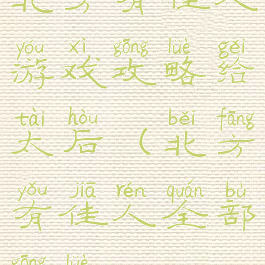 北方有佳人
yóu xì gōng lüè gěi
游戏攻略给
tài hòu běi fāng
太后（北方
yǒu jiā rén quán bù
有佳人全部
gōng lüè